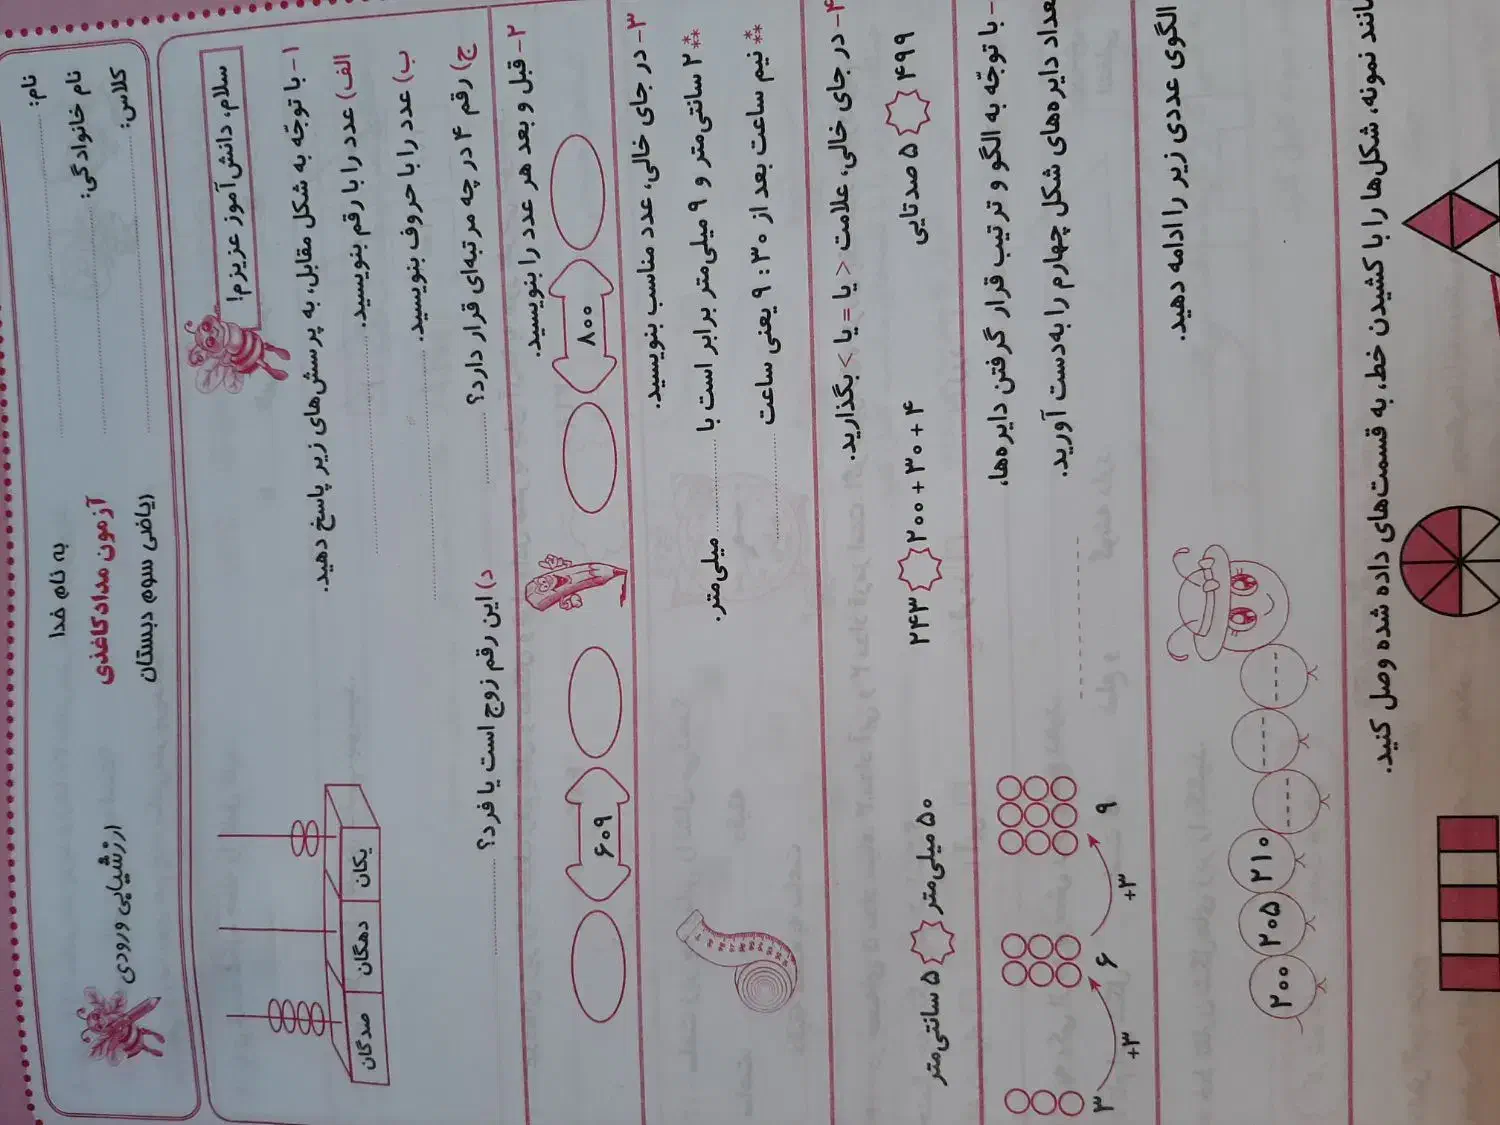 به نام خدا
نام:
آزمون مدادکاغذی
نام خانوادگی:
ریاضی سوم دبستان
کلاس:
ارزشیابی ورودی
سلام، دانش‌آموز عزیزم!
۱- با توجّه به شکل مقابل، به پرسش‌های زیر پاسخ دهید.
الف) عدد را با رقم بنویسید.
ب) عدد را با حروف بنویسید.
ج) رقم ۴ در چه مرتبه‌ای قرار دارد؟
د) این رقم زوج است یا فرد؟
صدگان دهگان یکان
۲- قبل و بعد هر عدد را بنویسید.
۸۰۰
۶۰۹
۳- در جای خالی، عدد مناسب بنویسید.
۲ سانتی‌متر و ۹ میلی‌متر برابر است با میلی‌متر.
نیم ساعت بعد از ۹:۳۰ یعنی ساعت
۴- در جای خالی، علامت > یا = یا < بگذارید.
۴۹۹ ۵ صدتایی
۲۴۳ ۲۰۰+۳۰+۴
۵ سانتی‌متر ۵۰ میلی‌متر
- با توجّه به الگو و ترتیب قرار گرفتن دایره‌ها،
تعداد دایره‌های شکل چهارم را به‌دست آورید.
۳ ۶ ۹
+۳ +۳
الگوی عددی زیر را ادامه دهید.
۲۰۰ ۲۰۵ ۲۱۰
مانند نمونه، شکل‌ها را با کشیدن خط، به قسمت‌های داده شده وصل کنید.